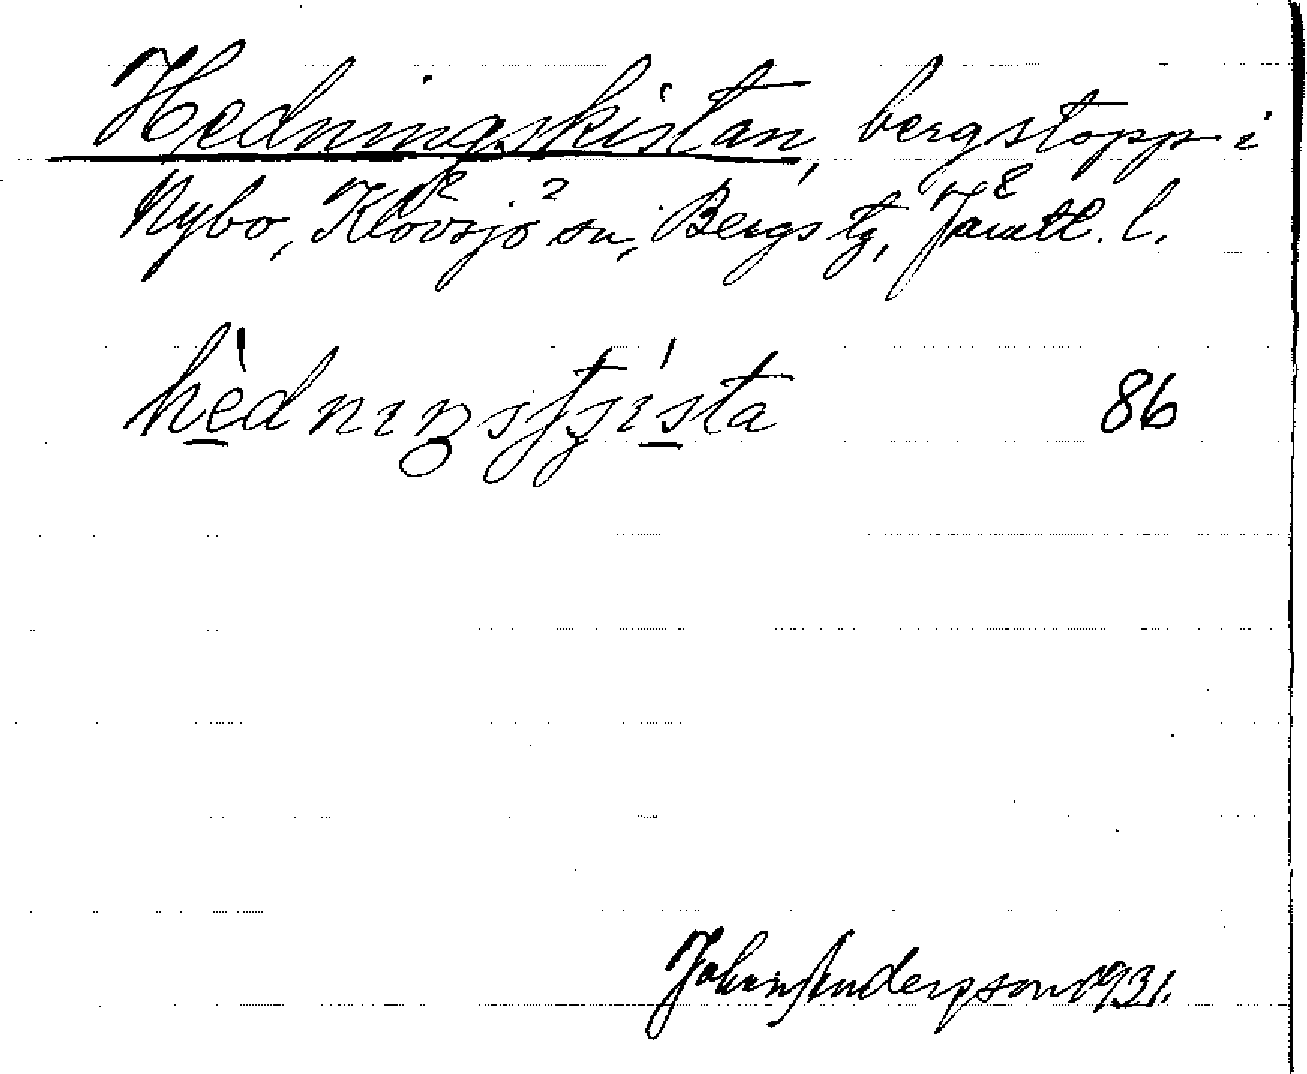 Hedningskistan, bergstopp i
Nybo, Klövsjö sn, Bergs tg, Jämtl. l.
hèdnıŋsʃʒísta 86
John Andersson 1931.